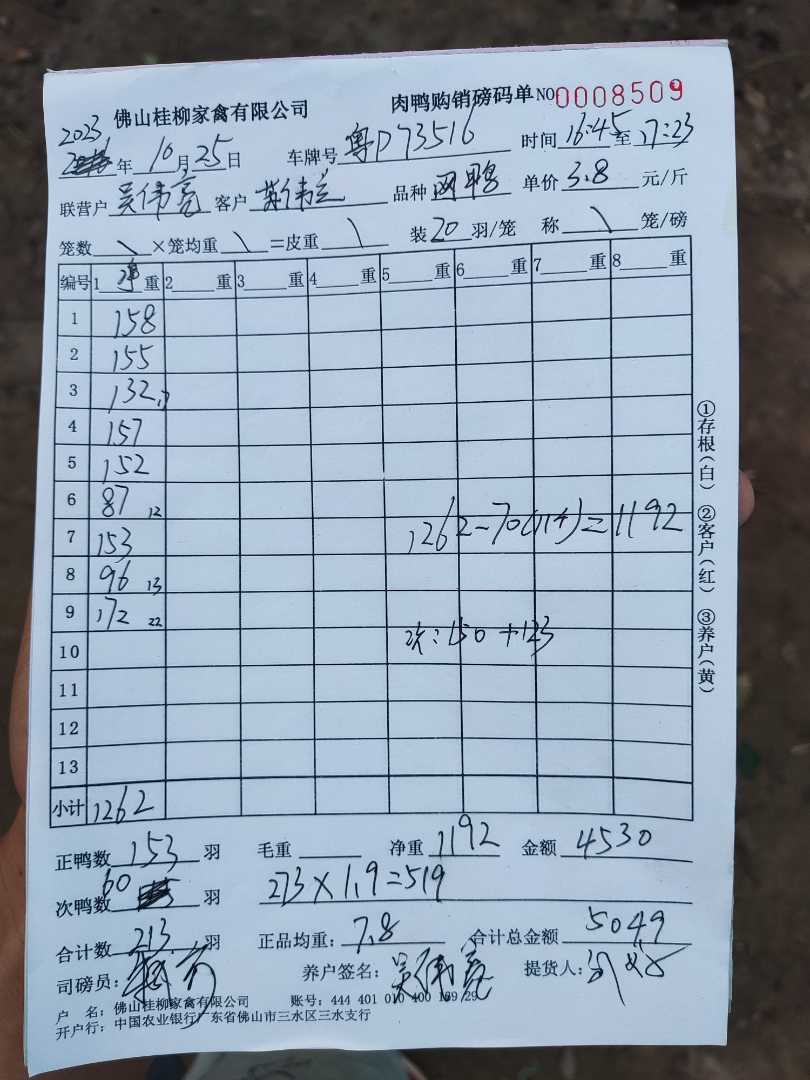 佛山桂柳家禽有限公司 肉鸭购销磅码单 NO 0008509
2023 年 10 月 25 日 车牌号 粤D73516 时间 16:45 至 17:23
联营户 吴伟亮 客户 品种 单价 3.8 元/斤
笼数 \ ×笼均重 \ =皮重 \ 装 20 羽/笼 称 \ 笼/磅
编号 1 净 重 2 重 3 重 4 重 5 重 6 重 7 重 8 重
1 158
2 155
3 132 17
4 157
5 152
6 87 12
7 153 1262-70(114)=1192
8 96 13
9 172 22
10 次:150+123
11
12
13
小计 1262
正鸭数 153 羽 毛重 净重 1192 金额 4530
次鸭数 60 羽 273×1.9=519
合计数 213 羽 正品均重: 7.8 合计总金额 5049
司磅员: 养户签名: 吴伟亮 提货人:
户 名: 佛山桂柳家禽有限公司 账号: 444 401 010 400 189 29
开户行: 中国农业银行广东省佛山市三水区三水支行
①存根(白) ②客户(红) ③养户(黄)